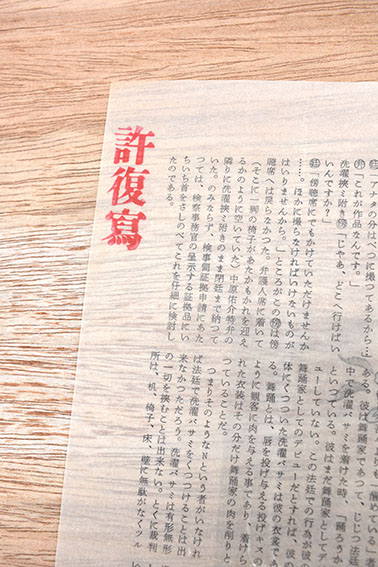 「アナタの分はべつに撮つてあるから…
「これが作品なんです。」
洗濯挾ミ附き「じやあ、どこへ行けばい
いんですか？」
「傍聴席にでもかけていただけませんか
……。ほかに撮らなければいけないものが
はいりませんから。」ところがこのは傍
聴席へは戻らなかつた。弁護人席に着いて
（そこに一脚の椅子があたかもかれを迎え
るかのように空いていた）中原佑介特弁の
隣りに洗濯挾ミ附きのまま閉廷まで納つて
いた。のみならず、検事側証拠申請にあた
つては、検察事務官の呈示する証拠品にい
ちいち首をさしのべてこれを仔細に検討し
たのである。
る。彼は舞踊家であつて、じじつ法廷
中で洗濯バサミを着けた時、「踊ろうか
といつている。彼はまだ舞踊家としてデ
ューしていない。この法廷での行為が彼
舞踊家としてのデビューだとすれば、彼の
体にくつついた洗濯バサミは彼の衣裳であ
る。舞踊とは、唇を投げ与える投げキス
ように観客に肉を与える事であり、着けら
れた衣裳はその分だけ舞踊家の肉を削り
つていることだ。
つまりそのようなNという者がいなけれ
ば法廷で洗濯バサミをくつつけることは出
来なかつただろう。洗濯バサミは有形無形
の一切を挾むことは出来ない。とくに裁判
所は、机、椅子、床、壁に無駄がなくツル
許復寫